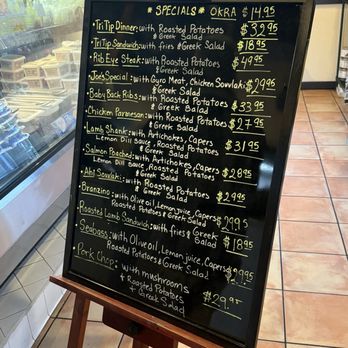 * SPECIALS * OKRA $14.95
• Tri Tip Dinner: with Roasted Potatoes $32.95
& Greek Salad
• Tri Tip Sandwich: with fries & Greek Salad $18.95
• Rib Eye Steak: with Roasted Potatoes $49.95
& Greek Salad
• Joe's Special: with Gyro Meat, Chicken Souvlaki $29.95
& Greek Salad
• Baby Back Ribs: with Roasted Potatoes $33.95
& Greek Salad
• Chicken Parmesan: with Roasted Potatoes $27.95
& Greek Salad
• Lamb Shank: with Artichokes, Capers $31.95
Lemon Dill Sauce, Roasted Potatoes
& Greek Salad
• Salmon Poached: with Artichokes, Capers $28.95
Lemon Dill Sauce, Roasted Potatoes
& Greek Salad
• Souvlaki: with Roasted Potatoes $28.95
& Greek Salad
• Branzino: with Olive oil, Lemon juice, Capers
Roasted Potatoes & Greek Salad $29.95
Roasted Lamb Sandwich: with fries & Greek Salad $18.95
Seabass: with Olive oil, Lemon juice, Capers
Roasted Potatoes & Greek Salad
• Pork Chop: with mushrooms $29.95
& Roasted Potatoes
+ Greek Salad